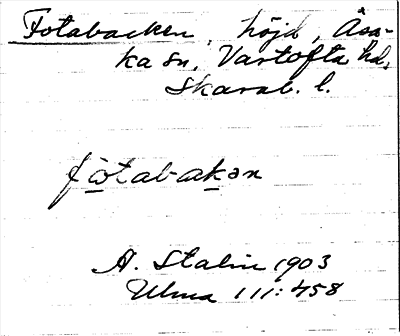 Fotabacken, höjd, Åsa-
ka sn, Vartofta hd,
Skarab. l.
fòtabakən
A. Stalin 1903
Ulma 111:458